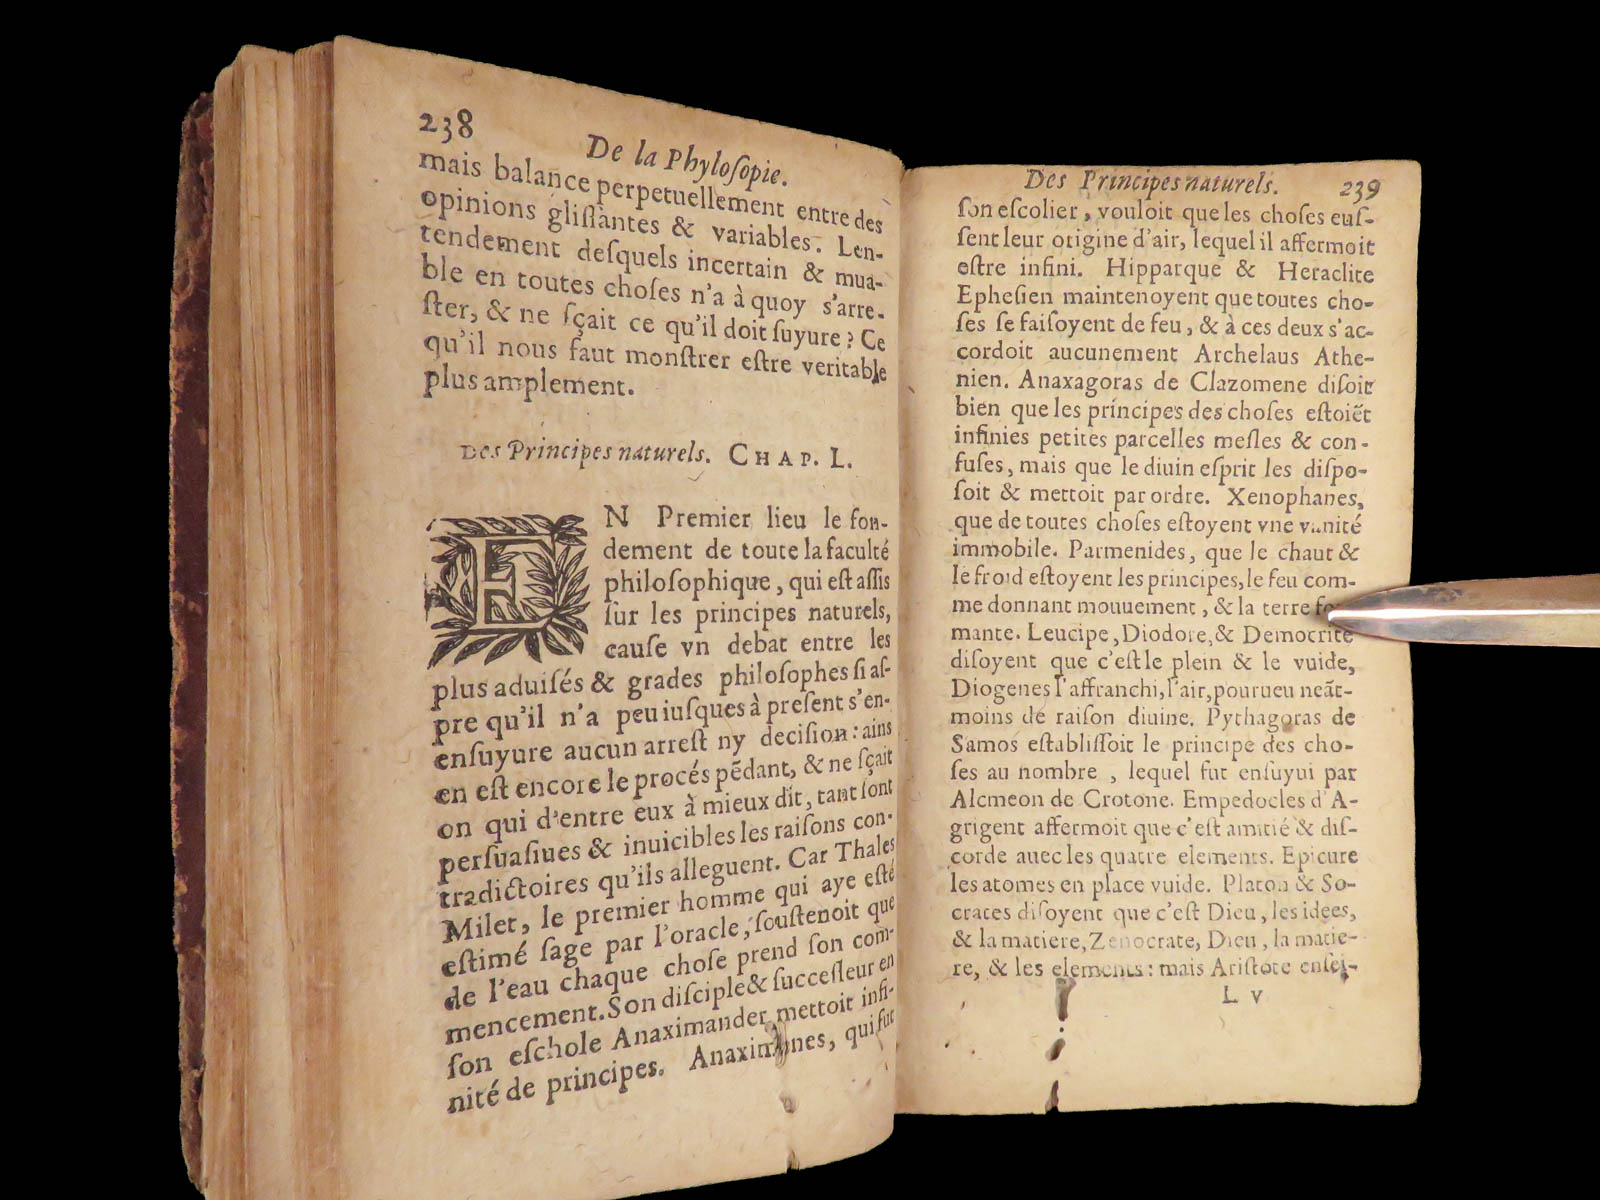 238
De la Phyloſopie.
mais balance perpetuellement entre des
opinions gliſſantes & variables. Len-
tendement deſquels incertain & mua-
ble en toutes choſes n'a à quoy s'arre-
ſter, & ne ſçait ce qu'il doit ſuyure? Ce
qu'il nous faut monſtrer eſtre veritable
plus amplement.
Des Principes naturels. CHAP. L.
EN Premier lieu le fon-
dement de toute la faculté
philoſophique, qui eſt aſſis
ſur les principes naturels,
cauſe vn debat entre les
plus aduiſés & grades philoſophes ſi aſ-
pre qu'il n'a peu iuſques à preſent s'en-
enſuyure aucun arreſt ny deciſion: ains
en eſt encore le procés pēdant, & ne ſçait
on qui d'entre eux à mieux dit, tant ſont
perſuaſiues & inuicibles les raiſons con-
tradictoires qu'ils alleguent. Car Thales
Milet, le premier homme qui aye eſté
eſtimé ſage par l'oracle, ſouſtenoit que
de l'eau chaque choſe prend ſon com-
mencement. Son diſciple & ſucceſſeur en
ſon eſchole Anaximander mettoit infi-
nité de principes. Anaximenes, qui fut
Des Principes naturels. 239
ſon eſcolier, vouloit que les choſes euſ-
ſent leur origine d'air, lequel il affermoit
eſtre infini. Hipparque & Heraclite
Epheſien maintenoyent que toutes cho-
ſes ſe faiſoyent de feu, & à ces deux s'ac-
cordoit aucunement Archelaus Athe-
nien. Anaxagoras de Clazomene diſoit
bien que les principes des choſes eſtoiēt
infinies petites parcelles meſles & con-
fuſes, mais que le diuin eſprit les diſpo-
ſoit & mettoit par ordre. Xenophanes,
que de toutes choſes eſtoyent vne vanité
immobile. Parmenides, que le chaut &
le froid eſtoyent les principes, le feu com-
me donnant mouuement, & la terre
mante. Leucipe, Diodore, & Democrite
diſoyent que c'eſt le plein & le vuide,
Diogenes l'affranchi, l'air, pourueu neāt-
moins de raiſon diuine. Pythagoras de
Samos eſtabliſſoit le principe des cho-
ſes au nombre, lequel fut enſuyui par
Alcmeon de Crotone. Empedocles d'A-
grigent affermoit que c'eſt amitié & diſ-
corde auec les quatre elements. Epicure
les atomes en place vuide. Platon & So-
crates diſoyent que c'eſt Dieu, les idees,
& la matiere, Zenocrate, Dieu, la matie-
re, & les elements: mais Ariſtote enſei-
L v